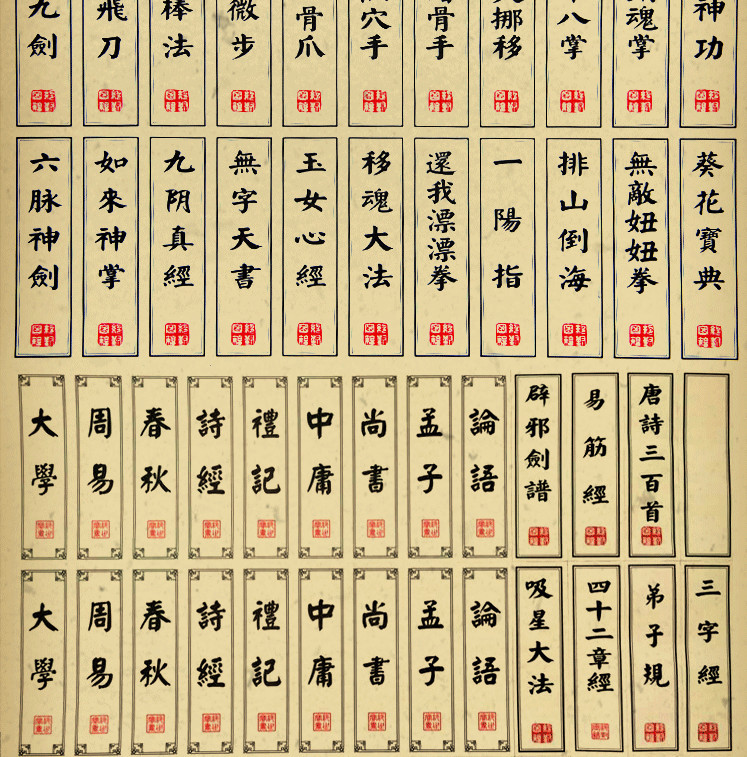 神功
魂掌
八掌
挪移
骨手
穴手
骨爪
微步
棒法
飛刀
九劍
葵花寶典
無敵妞妞拳
排山倒海
一陽指
還我漂漂拳
移魂大法
玉女心經
無字天書
九阴真經
如來神掌
六脉神劍
唐詩三百首
易筋經
辟邪劍譜
論語
孟子
尚書
中庸
禮記
詩經
春秋
周易
大學
三字經
弟子規
四十二章經
吸星大法
論語
孟子
尚書
中庸
禮記
詩經
春秋
周易
大學